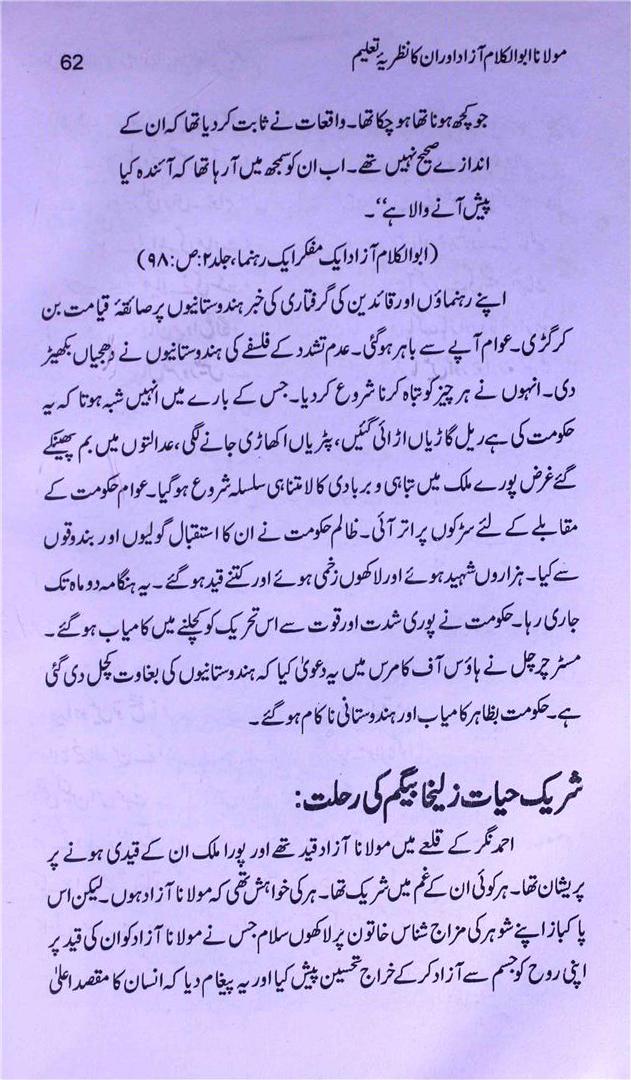 مولانا ابوالکلام آزاد اور ان کا نظریۂ تعلیم 62
جو کچھ ہونا تھا ہو چکا تھا۔ واقعات نے ثابت کر دیا تھا کہ ان کے
اندازے صحیح نہیں تھے۔ اب ان کو سمجھ میں آ رہا تھا کہ آئندہ کیا
پیش آنے والا ہے‘‘۔
(ابوالکلام آزاد ایک مفکر ایک رہنما، جلد ۲: ص: ۹۸)
اپنے رہنماؤں اور قائدین کی گرفتاری کی خبر ہندوستانیوں پر صائقۂ قیامت بن
کر گری۔ عوام آپے سے باہر ہو گئی۔ عدم تشدد کے فلسفے کی ہندوستانیوں نے دھجیاں بکھیڑ
دی۔ انہوں نے ہر چیز کو تباہ کرنا شروع کر دیا۔ جس کے بارے میں انہیں شبہ ہوتا کہ یہ
حکومت کی ہے ریل گاڑیاں اڑائی گئیں، پٹریاں اکھاڑی جانے لگی، عدالتوں میں بم پھینکے
گئے غرض پورے ملک میں تباہی و بربادی کا لامتناہی سلسلہ شروع ہو گیا۔ عوام حکومت کے
مقابلے کے لئے سڑکوں پر اتر آئی۔ ظالم حکومت نے ان کا استقبال گولیوں اور بندوقوں
سے کیا۔ ہزاروں شہید ہوئے اور لاکھوں زخمی ہوئے اور کتنے قید ہو گئے۔ یہ ہنگامہ دو ماہ تک
جاری رہا۔ حکومت نے پوری شدت اور قوت سے اس تحریک کو کچلنے میں کامیاب ہو گئے۔
مسٹر چرچل نے ہاؤس آف کامرس میں یہ دعویٰ کیا کہ ہندوستانیوں کی بغاوت کچل دی گئی
ہے۔ حکومت بظاہر کامیاب اور ہندوستانی ناکام ہو گئے۔
شریک حیات زلیخا بیگم کی رحلت:
احمد نگر کے قلعے میں مولانا آزاد قید تھے اور پورا ملک ان کے قیدی ہونے پر
پریشان تھا۔ ہر کوئی ان کے غم میں شریک تھا۔ ہر کی خواہش تھی کہ مولانا آزاد ہوں۔ لیکن اس
پاکباز اپنے شوہر کی مزاج شناس خاتون پر لاکھوں سلام جس نے مولانا آزاد کو ان کی قید پر
اپنی روح کو جسم سے آزاد کر کے خراج تحسین پیش کیا اور یہ پیغام دیا کہ انسان کا مقصد اعلیٰ